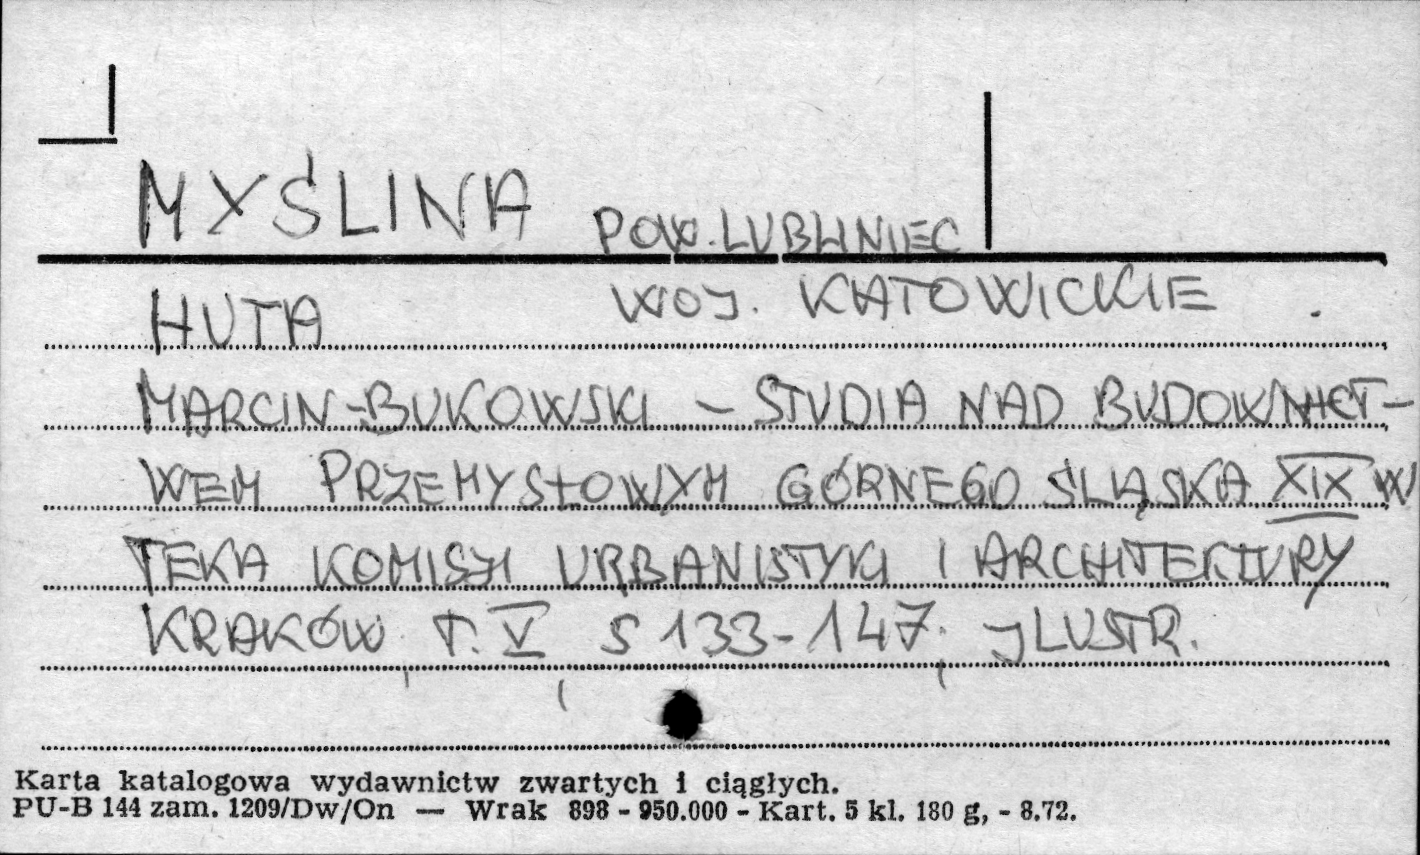 MYŚLINA POW. LUBLINIEC
HUTA WOJ. KATOWICKIE
MARCIN-BUKOWSKI – STUDIA NAD BUDOWNICT-
WEM PRZEMYSŁOWYM GÓRNEGO ŚLĄSKA XIX W
TEKA KOMISJI URBANISTYKI I ARCHITEKTURY
KRAKÓW T. V S 133-147. JLUSTR.
Karta katalogowa wydawnictw zwartych i ciągłych.
PU-B 144 zam. 1209/Dw/On — Wrak 898 - 950.000 - Kart. 5 kl. 180 g, - 8.72.